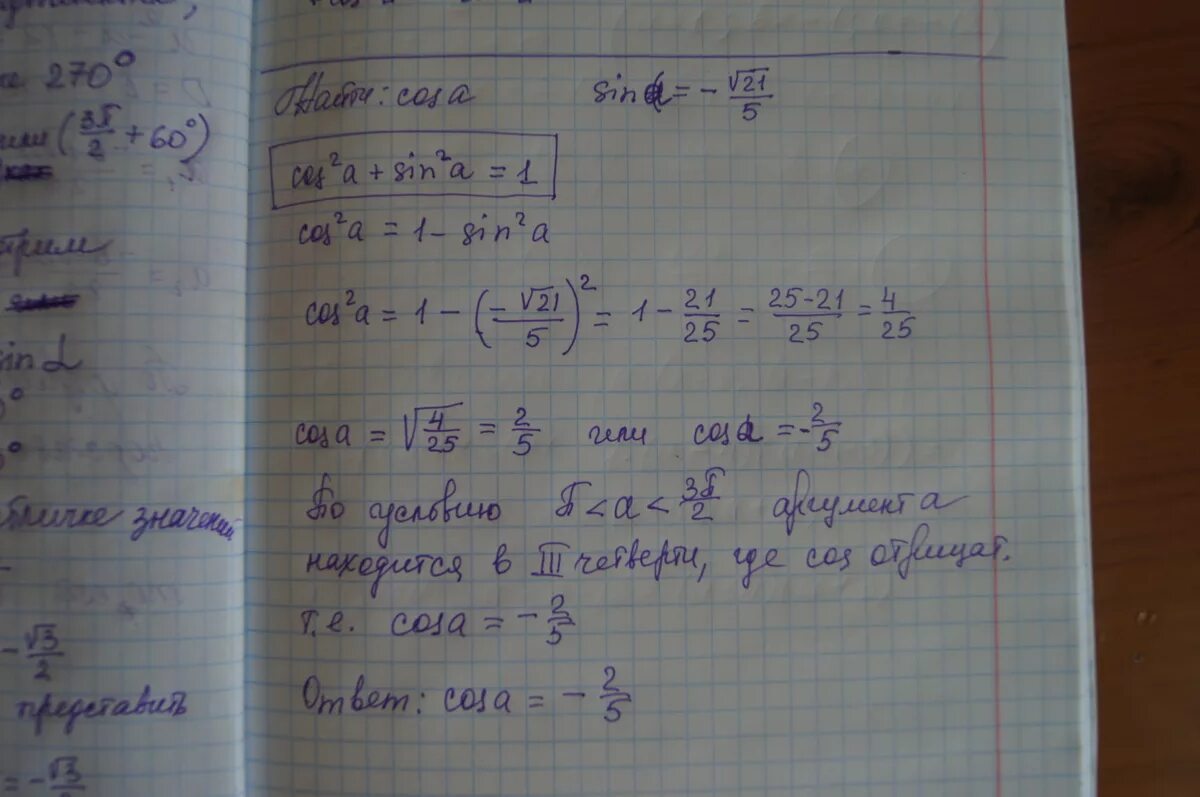 270°
или (3π/2 + 60°)
sin α
значений
-√3/2
представить
= -√3
Найти: cos a sin α = - √21/5
cos²a + sin²a = 1
cos²a = 1 - sin²a
cos²a = 1 - (-√21/5)² = 1 - 21/25 = 25-21/25 = 4/25
cos a = √4/25 = 2/5 или cos α = -2/5
По условию π < a < 3π/2 аргумент a
находится в III четверти, где cos отрицат.
т.е. cos a = - 2/5
Ответ: cos a = - 2/5